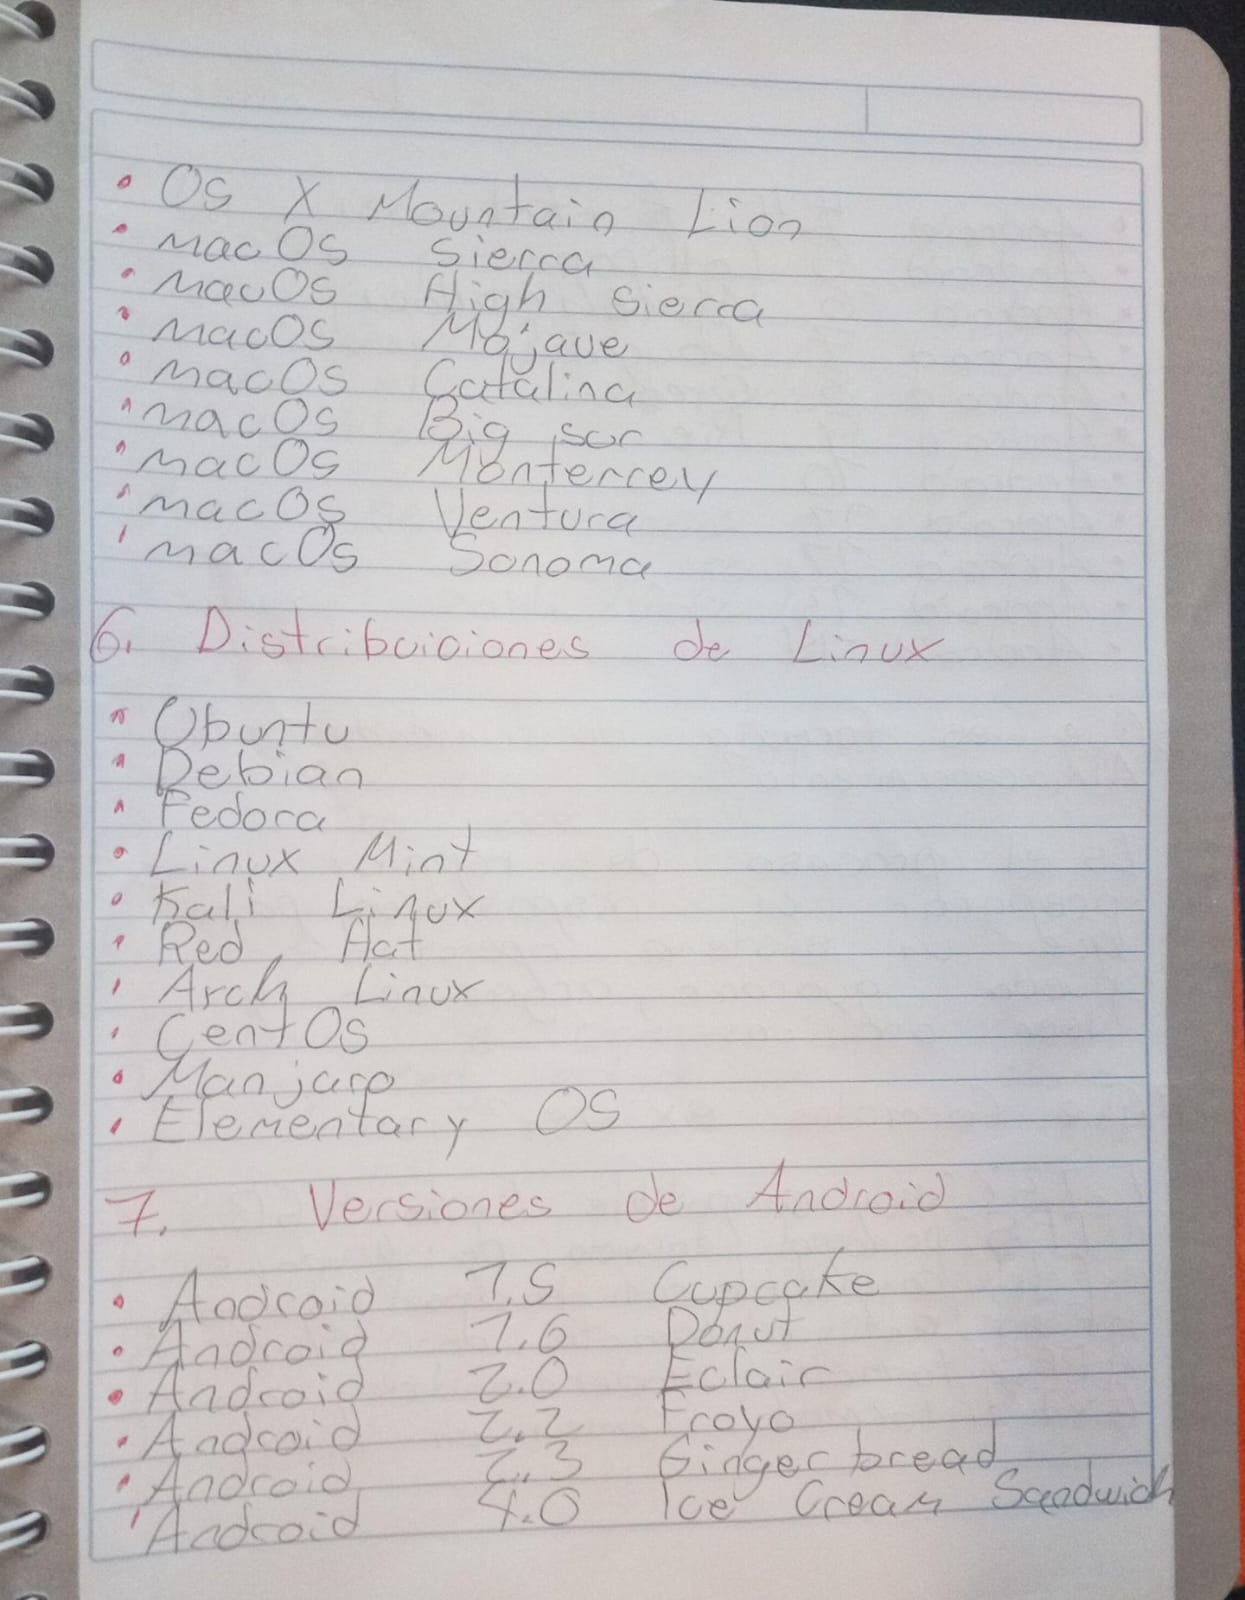 • Os X Mountain Lion
• macOs Sierra
• MacOs High Sierra
• MacOs Mojave
• MacOs Catalina
• macOs Big sur
• macOs Monterrey
• macOs Ventura
• macOs Sonoma
6. Distribuiciones de Linux
• Ubuntu
• Debian
• Fedora
• Linux Mint
• Kali Linux
• Red Hat
• Arch Linux
• CentOs
• Manjaro
• Elementary OS
7. Versiones de Android
• Android 1.5 Cupcake
• Android 1.6 Donut
• Android 2.0 Eclair
• Android 2.2 Froyo
• Android 2.3 Ginger bread
• Android 4.0 Ice Cream Sandwich